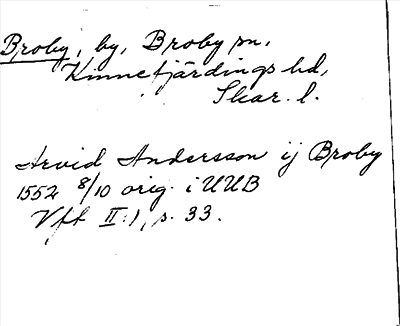 Broby, by, Broby sn,
Kinnefjärdings hd,
Skar. l.
Arvid Andersson ij Broby
1552 8/10 orig. i UUB
Vft II:1, s. 33.